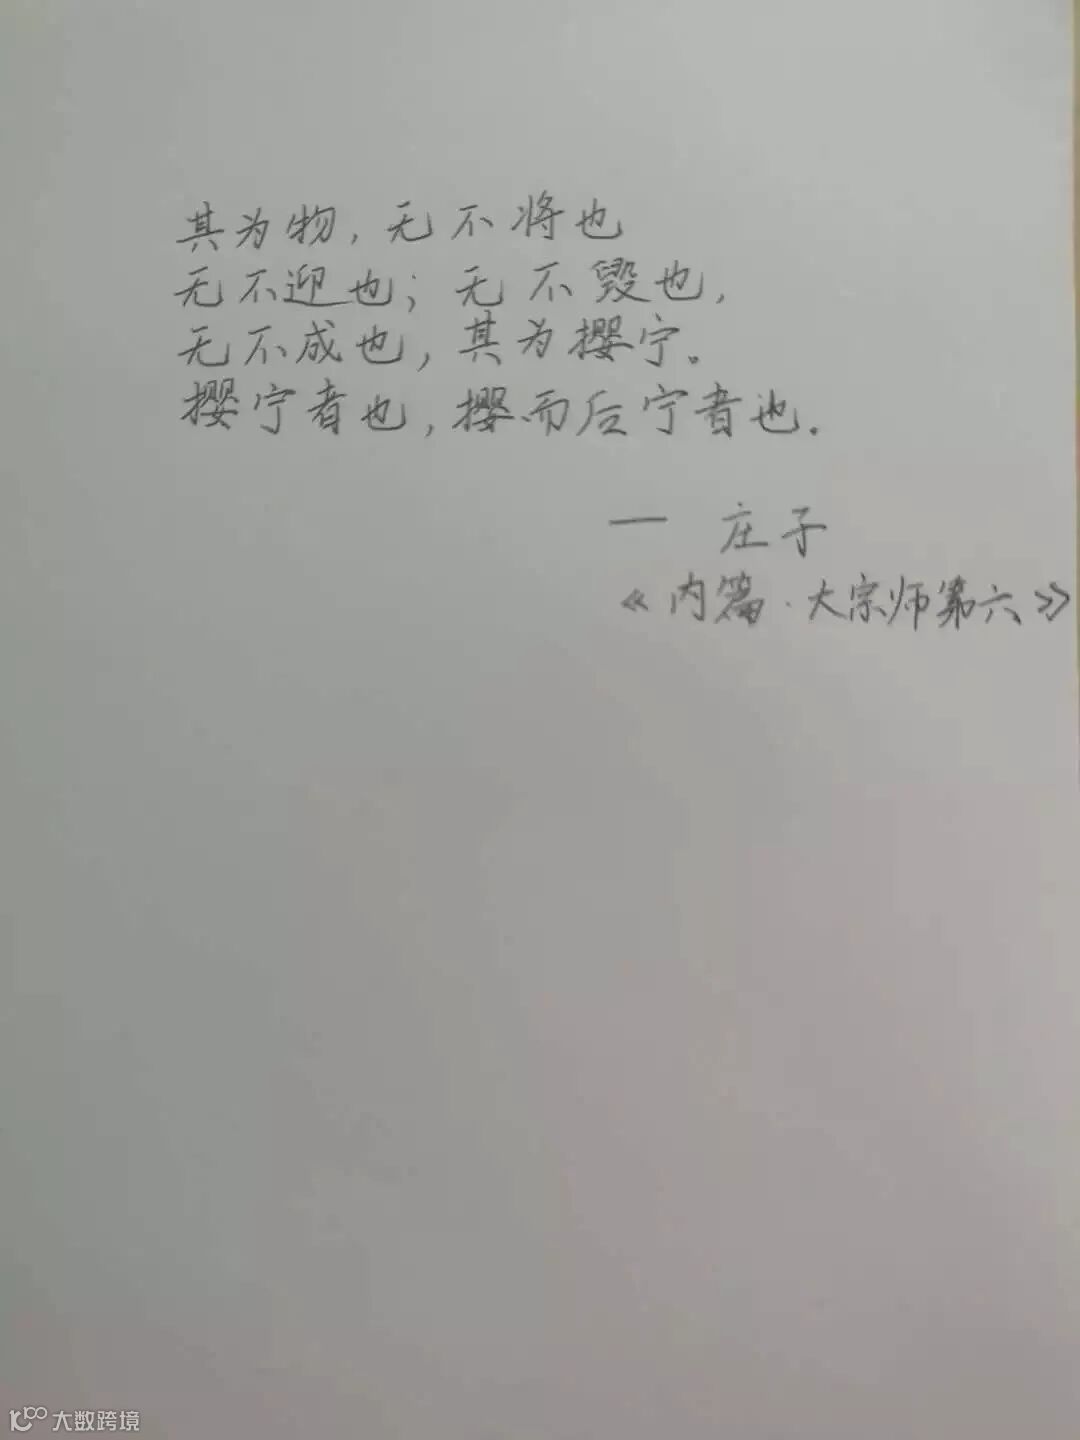 其为物，无不将也
无不迎也；无不毁也，
无不成也，其为撄宁。
撄宁者也，撄而后宁者也.
— 庄子
《内篇·大宗师第六》
大数跨境